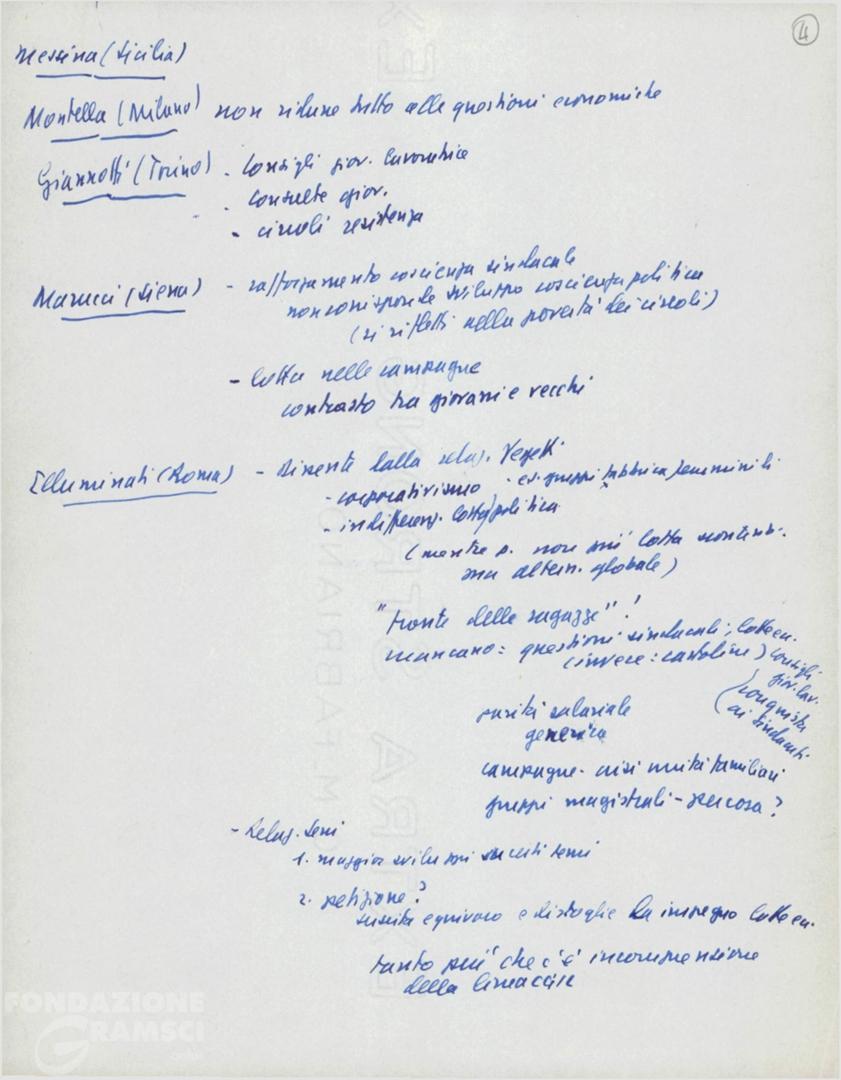 4
Messina (Sicilia)
Montella (Milano) non ridurre tutto alle questioni economiche
Giannotti (Torino) - Consigli giov. lavoratrice
- consulte giov.
- circoli resistenza
Marucci (Siena) - rafforzamento coscienza sindacale
non corrisponde sviluppo coscienza politica
(si rifletti nella povertà dei circoli)
- lotta nelle campagne
contrasto tra giovani e vecchi
Illuminati (Roma) - dissente dalla relaz. Vegetti
- corporativismo - es. gruppi fabbrica/femminili
- indifferenz. lotta/politica
(mentre p. non più lotta
ma altern. globale)
"fronte delle ragazze"!
mancano: questioni sindacali; lotte ec.
(invece: cartoline) consigli
giov. lav.
(conquista
ai sindacati
parità salariale
generica
campagne - crisi unità familiari
gruppi magistrali - per cosa?
- Relaz. Seni
1. maggior svilu
2. petizione?
suscita equivoco e distoglie da impegno lotte ec.
tanto più che c'è incomprensione
della linea CGIL
FONDAZIONE
GRAMSCI